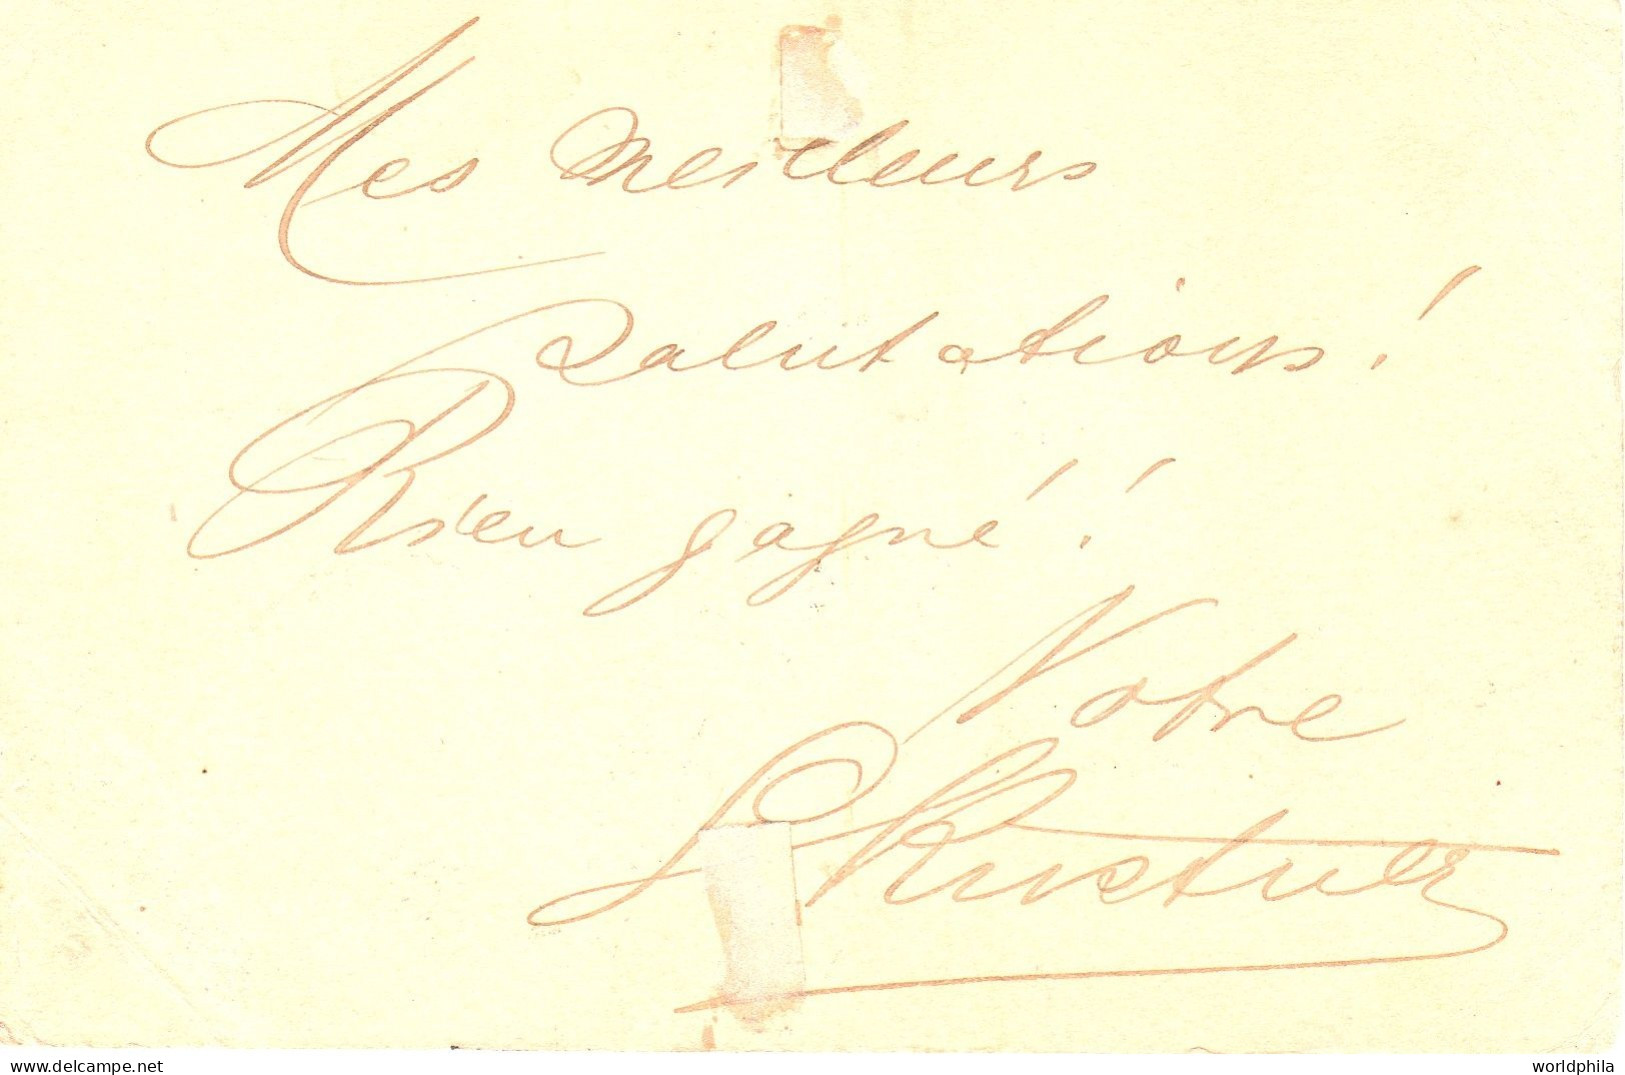 Mes meilleurs
salutations!
Rien gagné!
Votre
delcampe.net
worldphila